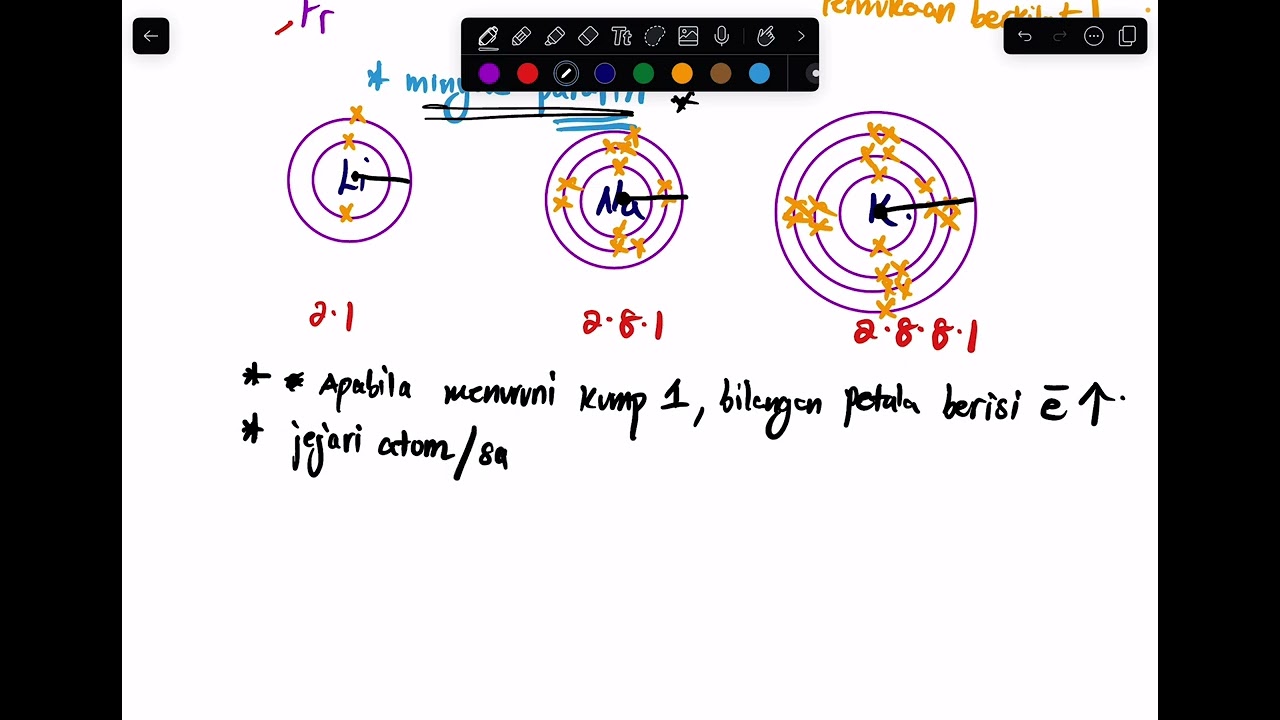 Fr
permukaan berkilat!
Tt
* minyak parafin *
Li
Na
K.
2.1
2.8.1
2.8.8.1
* * Apabila menuruni kump 1, bilangan petala berisi ē ↑.
* jejari atom/sa